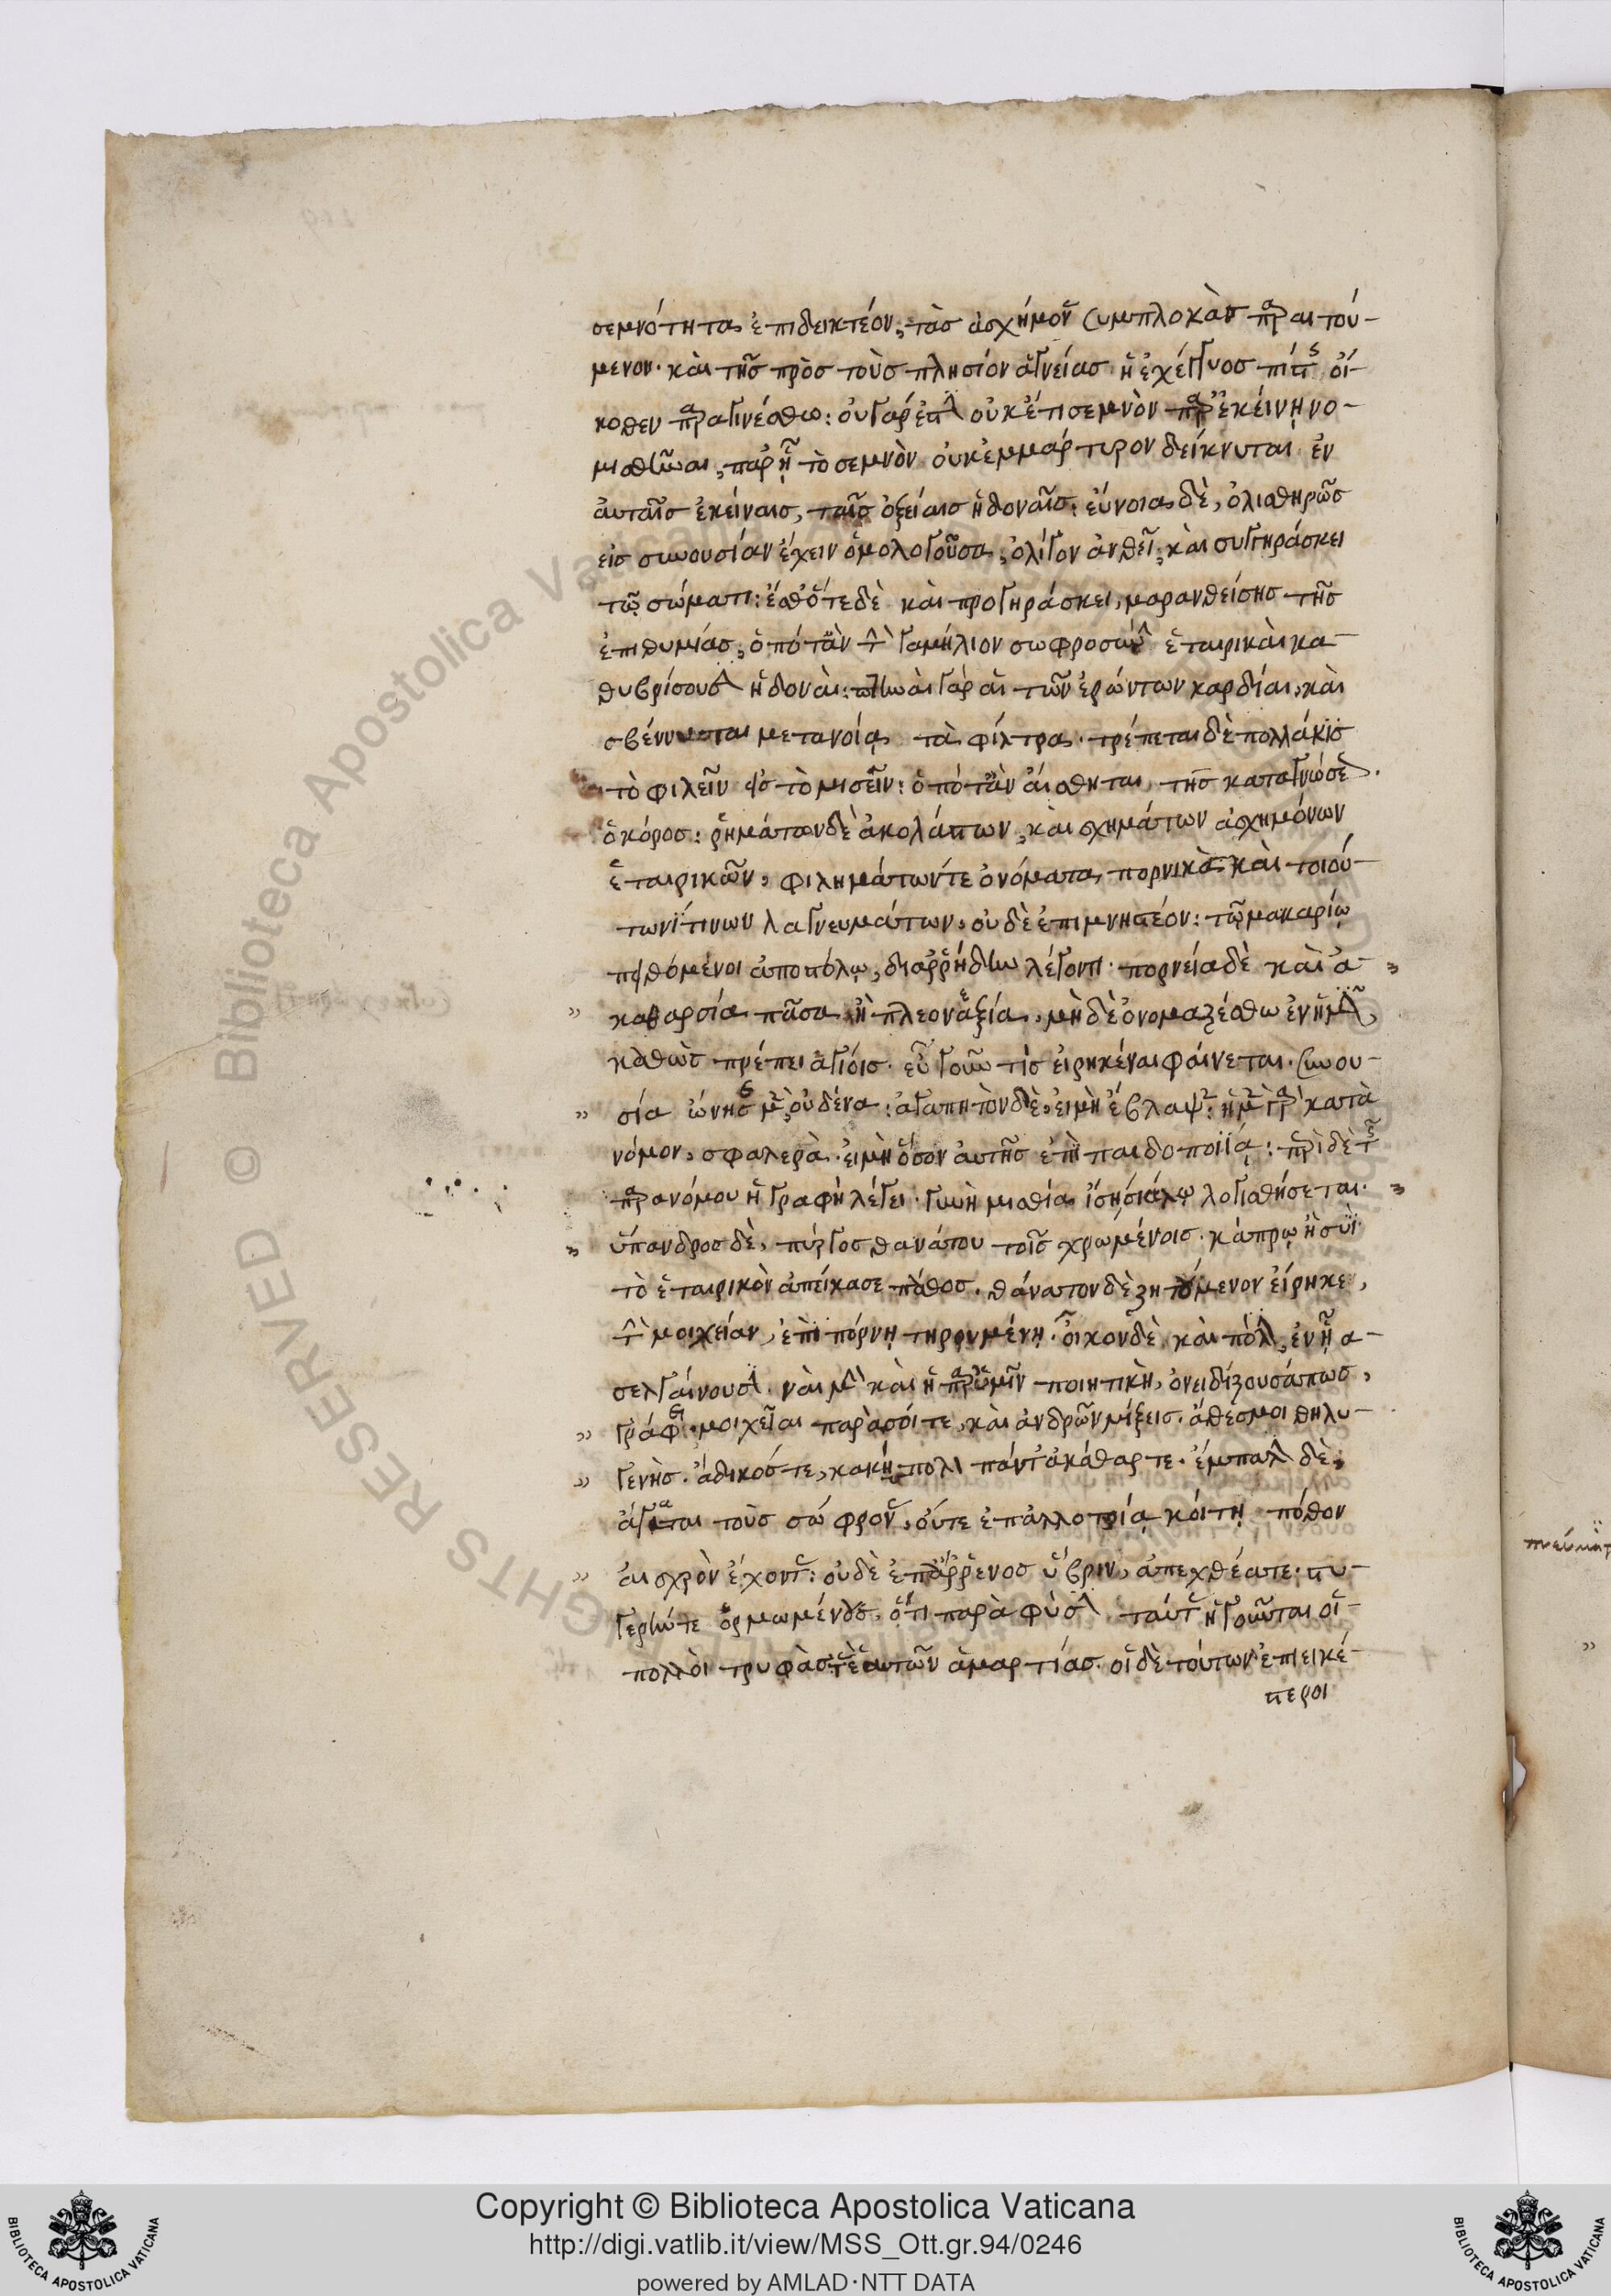 σεμνότητα ἐπιδεικτέον, τὰσ ἀσχήμον συμπλοκὰσ παραιτού-
μενον· καὶ τῆσ πρὸσ τοὺσ πλησίον ἁγνείασ ἡ ἐχέγγυοσ πίστις οἴ-
κοθεν παραγινέσθω: οὐ γάρ ἐστιν οὐκ ἔτι σεμνὸν παρ' ἐκείνῃ νο-
μισθῆναι, παρ' ᾗ τὸ σεμνὸν οὐκ ἐμμάρτυρον δείκνυται ἐν
ἀυταῖσ ἐκείναισ, ταῖσ ὀξείαισ ἡδοναῖσ: εὔνοια δὲ, ὀλισθηρῶσ
εἰσ συνουσίαν ἔχειν ὁμολογοῦσα, ὀλίγον ἀνθεῖ, καὶ συγγηράσκει
τῷ σώματι: ἔσθ' ὅτε δὲ καὶ προγηράσκει, μαρανθείσησ τῆσ
ἐπιθυμίασ, ὁπόταν τὴν γαμήλιον σωφροσύνην ἑταιρικαὶ κα-
θυβρίσουσιν ἡδοναὶ: πτηναὶ γάρ αἱ τῶν ἐρώντων καρδίαι, καὶ
σβέννυται μετανοίᾳ τὰ φίλτρα. τρέπεται δὲ πολλάκισ
τὸ φιλεῖν εἰσ τὸ μισεῖν: ὁπόταν αἴσθηται τῆσ καταγνώσεωσ.
ὁ κόροσ: ῥημάτων δὲ ἀκολάστων, καὶ σχημάτων ἀσχημόνων
ἑταιρικῶν, φιλημάτων τε ὀνόματα πορνικὰ καὶ τοιού-
των τινων λαγνευμάτων, οὐδὲ ἐπιμνηστέον: τῷ μακαρίῳ
πειθόμενοι ἀποστόλῳ, διαῤῥήδην λέγοντι· πορνεία δὲ καὶ ἀ-
» καθαρσία πᾶσα ἢ πλεονεξία, μὴ δὲ ὀνομαζέσθω ἐν ἡμῖν,
καθὼσ πρέπει ἁγίοισ· εὖ γοῦν τὶσ εἰρηκέναι φαίνεται. συνου-
» σία ὤνησε μὲν οὐδένα: ἀγαπητὸν δὲ, εἰ μὴ ἔβλαψεν: ἡ μὲν γὰρ κατὰ
νόμον, σφαλερὰ. εἰ μὴ ὅσον ἀυτῆσ ἐπὶ παιδοποιίᾳ: περὶ δὲ τῆς
παρανόμου ἡ γραφὴ λέγει· γυνὴ μισθία ἴση σιάλῳ λογισθήσεται·
» ὕπανδροσ δὲ, πύργοσ θανάτου τοῖσ χρωμένοισ. κάπρῳ ἢ συῒ
τὸ ἑταιρικὸν ἀπείκασε πάθοσ. θάνατον δὲ ζητούμενον εἴρηκε,
τὴν μοιχείαν, ἐπὶ πόρνῃ τηρουμένῃ. οἶκον δὲ καὶ πόλιν, ἐν ᾗ ἀ-
σελγαίνουσιν. ναὶ μὴν καὶ ἡ παρ' ὑμῖν ποιητικὴ, ὀνειδίζουσά πωσ,
» γράφει· μοιχεῖαι παρὰ σοί τε, καὶ ἀνδρῶν μίξεισ. ἄθεσμοι θηλυ-
» γενὴσ. ἄδικόσ τε, κακὴ πόλι πάντ' ἀκάθαρτε· ἔμπαλιν δὲ,
ἄγαται τοὺσ σώφρονας, οὔτε ἐπ' ἀλλοτρίᾳ κοίτῃ πόθον
» αἰσχρὸν ἔχοντας: οὐδὲ ἐπ' ἄῤῥενοσ ὕβριν, ἀπεχθέα τε· στυ-
γερήν τε ὁρμωμένους, ὅτι παρὰ φύσιν ταύτας ἡγοῦνται οἱ
πολλοὶ τρυφὰσ τὰς ἑαυτῶν ἁμαρτίασ. οἱ δὲ τούτων ἐπιεικέ-
στεροι
Copyright © Biblioteca Apostolica Vaticana
http://digi.vatlib.it/view/MSS_Ott.gr.94/0246
powered by AMLAD·NTT DATA